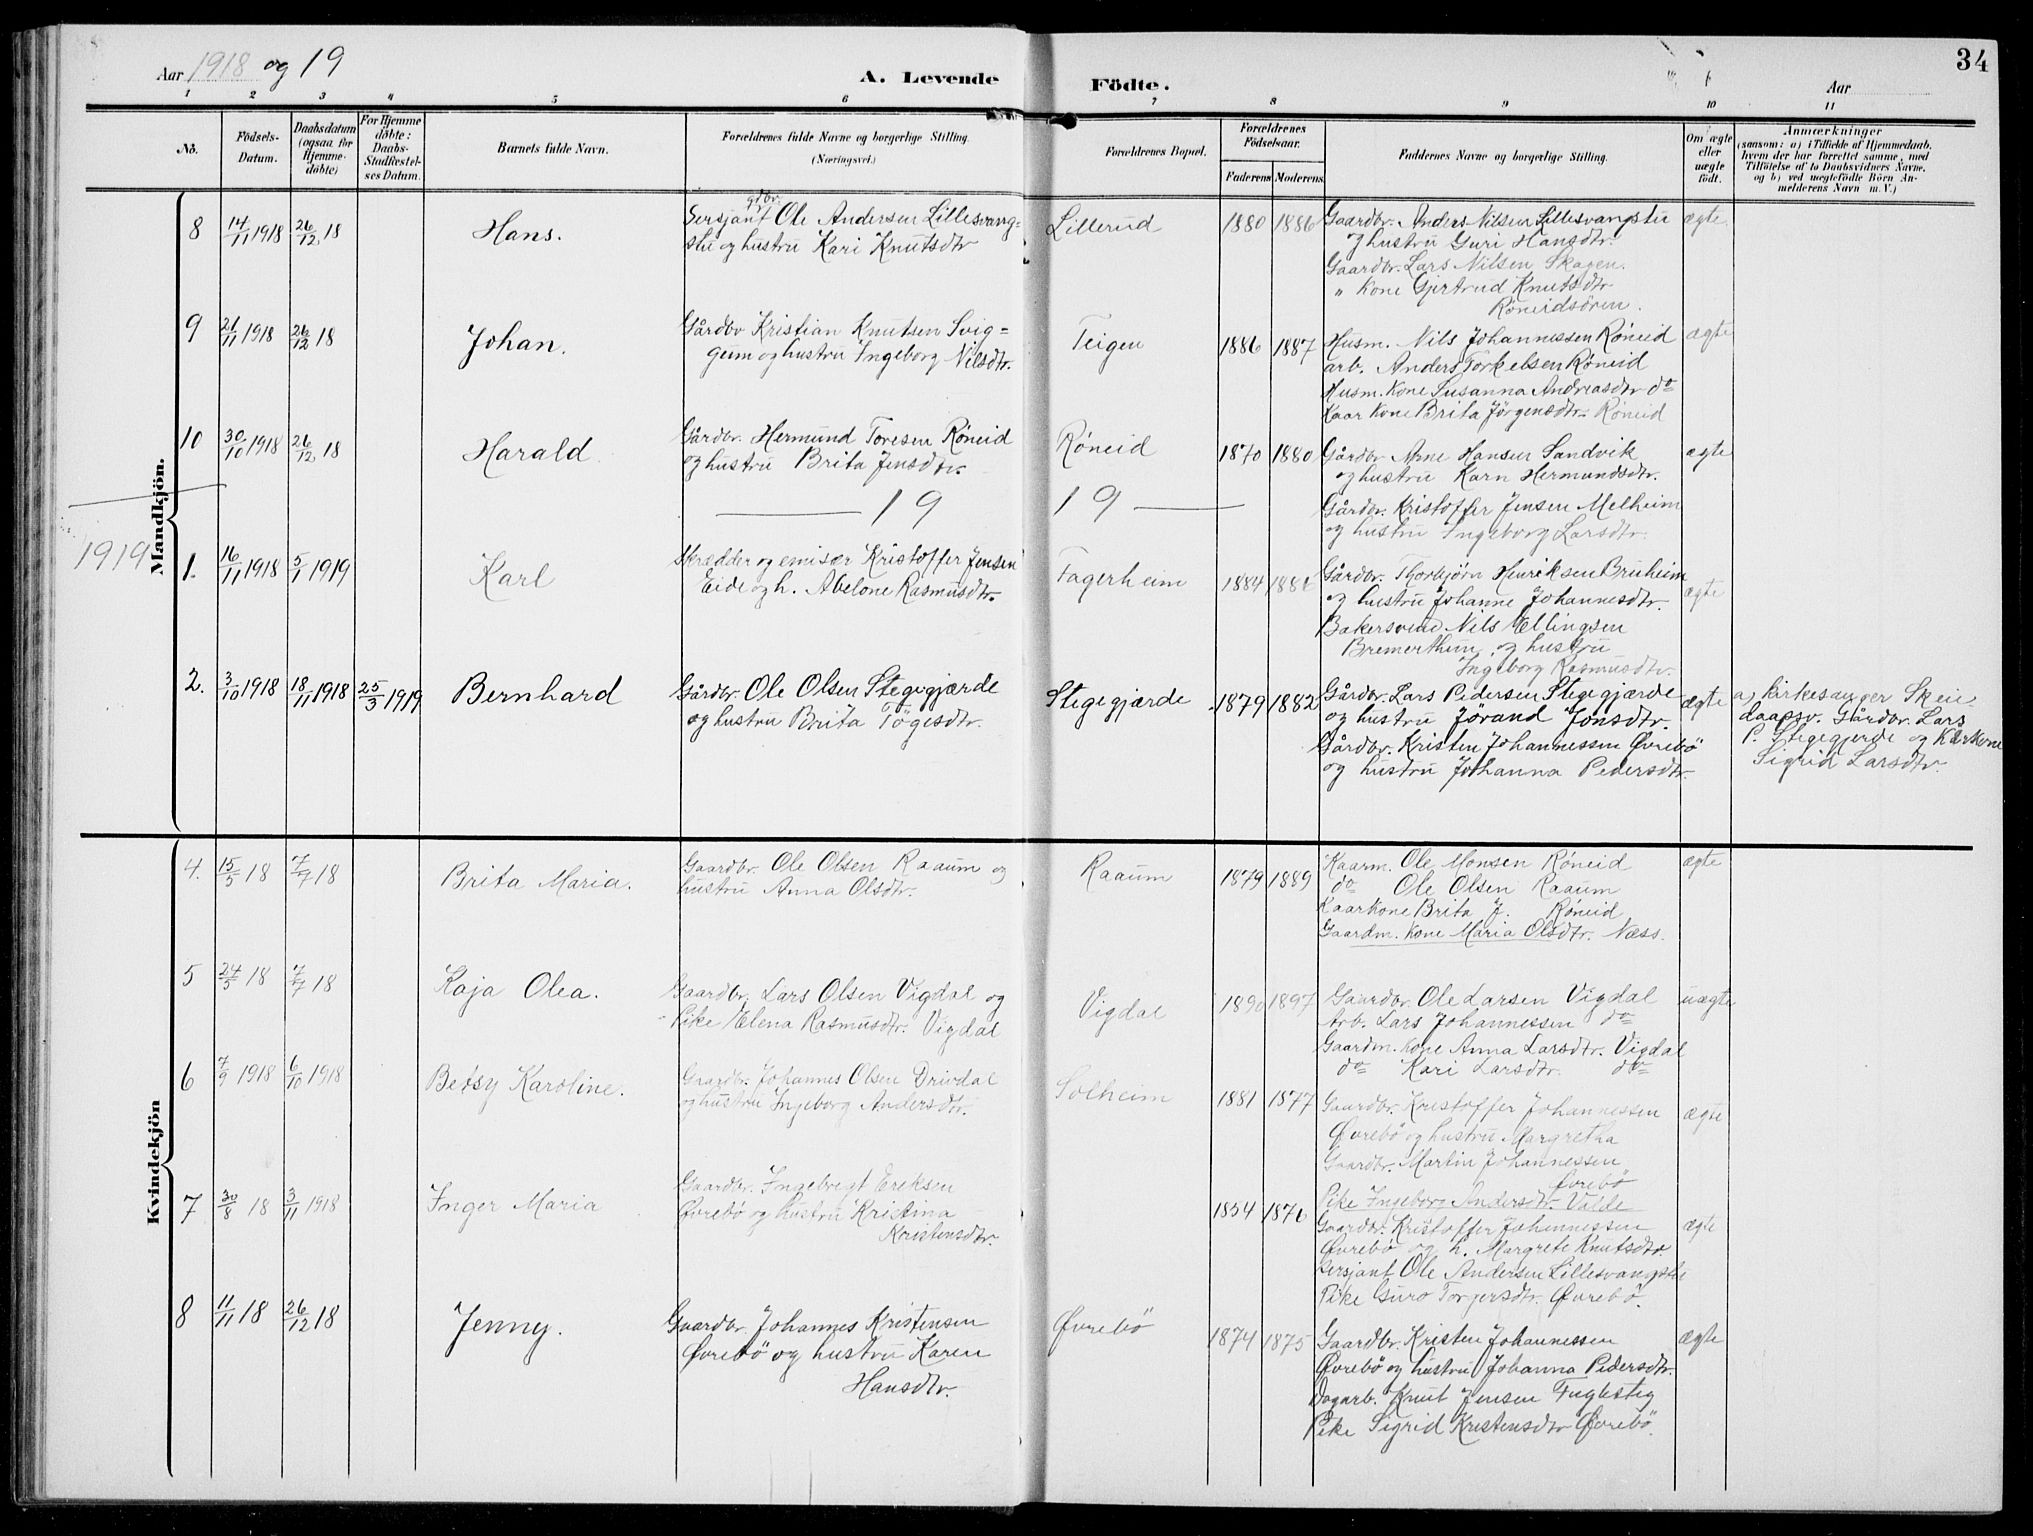 Aar 1918 og 19
A. Levende
Födte.
Aar
34
1 2 3 4 5 6 7 8 9 10 11
Nô.
Födsels-
Datum.
Daabsdatum
(ogsaa for
Hjemme-
döbte)
For Hjemme
döbte:
Daabs-
Stadfæstel-
ses Datum.
Barnets fulde Navn.
Forældrenes fulde Navne og borgerlige Stilling.
(Næringsvei.)
Forældrenes Bopæl.
Forældrenes
Födselsaar.
Faderens Moderens
Faddernes Navne og borgerlige Stilling.
Om ægte
eller
uægte
födt.
Anmærkninger
(saasom: a) i Tilfælde af Hjemmedaab,
hvem der har forrettet samme, med
Tilföielse af to Daabsvidners Navne.
og b) ved uægtefödte Börn An-
melderens Navn m. V.)
Mandkjön.
8 14/11 1918 26/12 18 Hans.
gbr.
Sersjant Ole Andersen Lillesvang-
stu og hustru Kari Knutsdtr
Lillerud 1880 1886
Gaardbr. Anders Nilsen Lillesvangstu
og hustru Guri Hansdtr.
Gaardbr. Lars Nilsen Skagen.
" Kone Gjertrud Knutsdtr
Röneidsören.
ægte
9 21/11 1918 26/12 18 Johan.
Gårdbr Kristian Knutsen Svig-
gum og hustru Ingeborg Nilsdtr.
Teigen 1886 1887
Husm. Nils Johannessen Röneid
arb. Anders Torkelsen Röneid
Husm. Kone Susanna Andreasdtr do
Kaar Kone Brita Jörgensdtr. Röneid
ægte
10 30/10 1918 26/12 18 Harald
Gårdbr. Hermund Toresen Röneid
og hustru Brita Jensdtr.
Röneid 1870 1880
Gårdbr Arne Hansen Sandvik
og hustru Karn Hermundsdtr.
Gårdbr. Kristoffer Jensen Melheim
og hustru Ingeborg Larsdtr.
ægte
19 19
1919
1. 16/11 1918 5/1 1919 Karl
Skrædder og emisær Kristoffer Jensen
Eide og h. Abelone Rasmusdtr.
Fagerheim 1884 1886
Gårdbr. Thorbjørn Henriksen Bruheim
og hustru Johanne Johannesdtr.
Bakersvend Nils Ellingsen
Bremerthun og hustru
Ingeborg Rasmusdtr.
ægte
2. 3/10 1918 18/11 1918 25/3 1919 Bernhard
Gårdbr. Ole Olsen Stegegjærde
og hustru Brita Tögesdtr.
Stegegjærde 1879 1882
Gårdbr. Lars Pedersen Stegegjærde
og hustru Jørand Jonsdtr.
Gårdbr. Kristen Johannessen Øvrebö
og hustru Johanna Pedersdtr.
ægte
a) Kirkesanger Skeie
daapsv. Gårdbr. Lars
P. Stegegjerde og Kårkone
Sigrid Larsdtr.
Kvindekjön
4. 15/5 18 7/7 18 Brita Maria.
Gaardbr. Ole Olsen Raaum og
hustru Anna Olsdtr.
Raaum 1879 1889
Kaarm. Ole Monsen Röneid
do Ole Olsen Raaum
Kaarkone Brita J. Röneid
Gaardm. Kone Maria Olsdtr. Næss.
ægte
5 24/5 18 7/7 18 Kaja Olea.
Gaardbr. Lars Olsen Vigdal og
Pike Elena Rasmusdtr. Vigdal
Vigdal 1890 1897
Gaardbr. Ole Larsen Vigdal
Arb. Lars Johannessen do
Gaardm. Kone Anna Larsdtr. Vigdal
do Kari Larsdtr. do
uægte
6 7/9 1918 6/10 1918 Betsy Karoline.
Gaardbr. Johannes Olsen Drivdal
og hustru Ingeborg Andersdtr.
Solheim 1881 1877
Gaardbr. Kristoffer Johannessen
Øvrebö og hustru Margretha
Gaardbr. Martin Johannessen
Øvrebö
Pike Ingeborg Andersdtr. Valde
ægte
7 30/8 18 3/11 1918 Inger Maria
Gaardbr. Ingebregt Eriksen
Øvrebö og hustru Kristina
Kristensdtr.
1854 1876
Gaardbr. Kristoffer Johannessen
Øvrebö og h. Margrete Knutsdtr.
Sersjant Ole Andersen Lillesvangstu
Pike Guro Torgersdtr. Øvrebö.
ægte
8 11/11 18 26/12 18 Jenny.
Gaardbr. Johannes Kristensen
Øvrebö og hustru Karen
Hansdtr.
Øvrebö 1874 1875
Gaardbr. Kristen Johannessen
Øvrebö og hustru Johanna Pedersdtr.
Dagarb. Knut Jensen Fuglesteg
Pike Sigrid Kristensdtr Øvrebö.
ægte